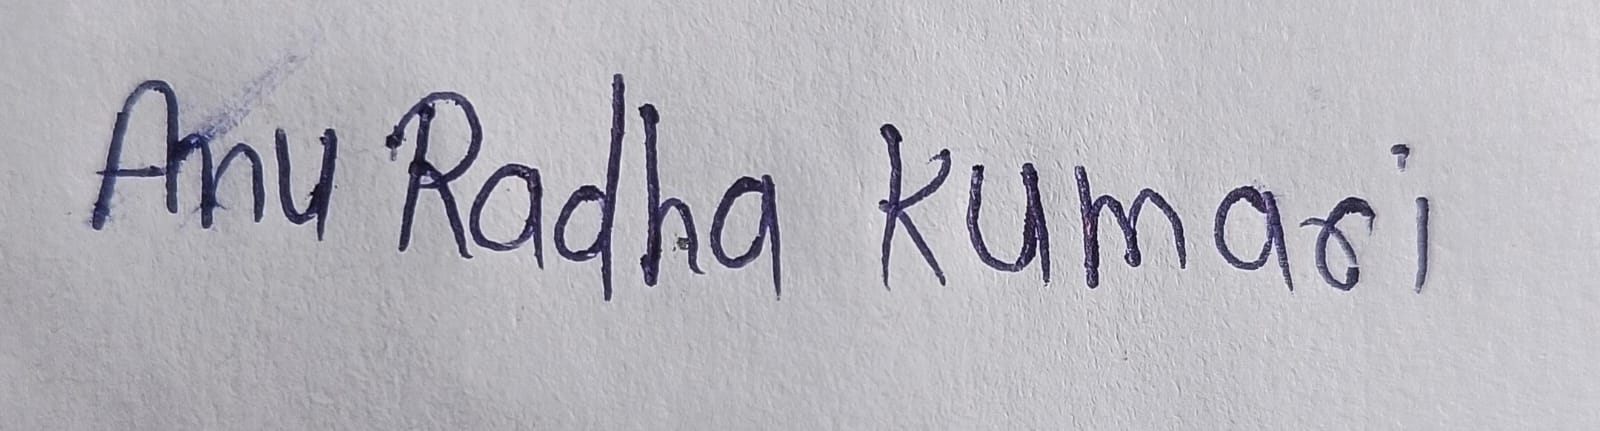 Anu Radha Kumari